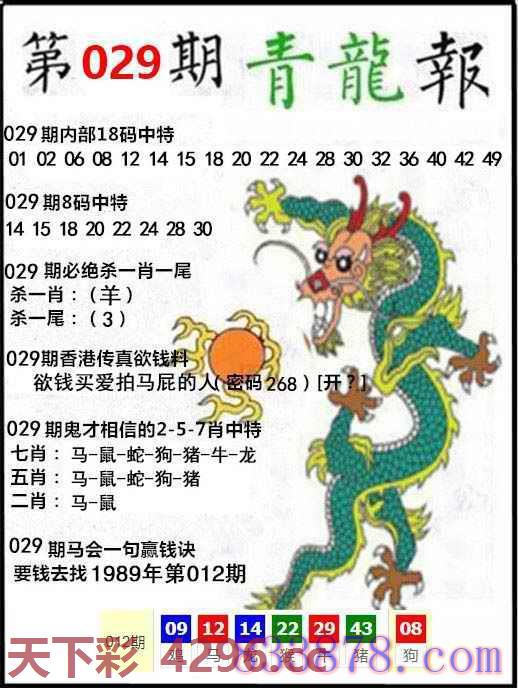 第029期青龍報
029期内部18码中特
01 02 06 08 12 14 15 18 20 22 24 28 30 32 36 40 42 49
029期8码中特
14 15 18 20 22 24 28 30
029期必绝杀一肖一尾
杀一肖：（羊）
杀一尾：（3）
029期香港传真欲钱料
欲钱买爱拍马屁的人（密码268）[开？]
029期鬼才相信的2-5-7肖中特
七肖： 马-鼠-蛇-狗-猪-牛-龙
五肖： 马-鼠-蛇-狗-猪
二肖： 马-鼠
029期马会一句赢钱诀
要钱去找1989年第012期
012期 09 12 14 22 29 43 08
鸡 马 龙 猴 牛 猪 狗
天下彩 4296.cc